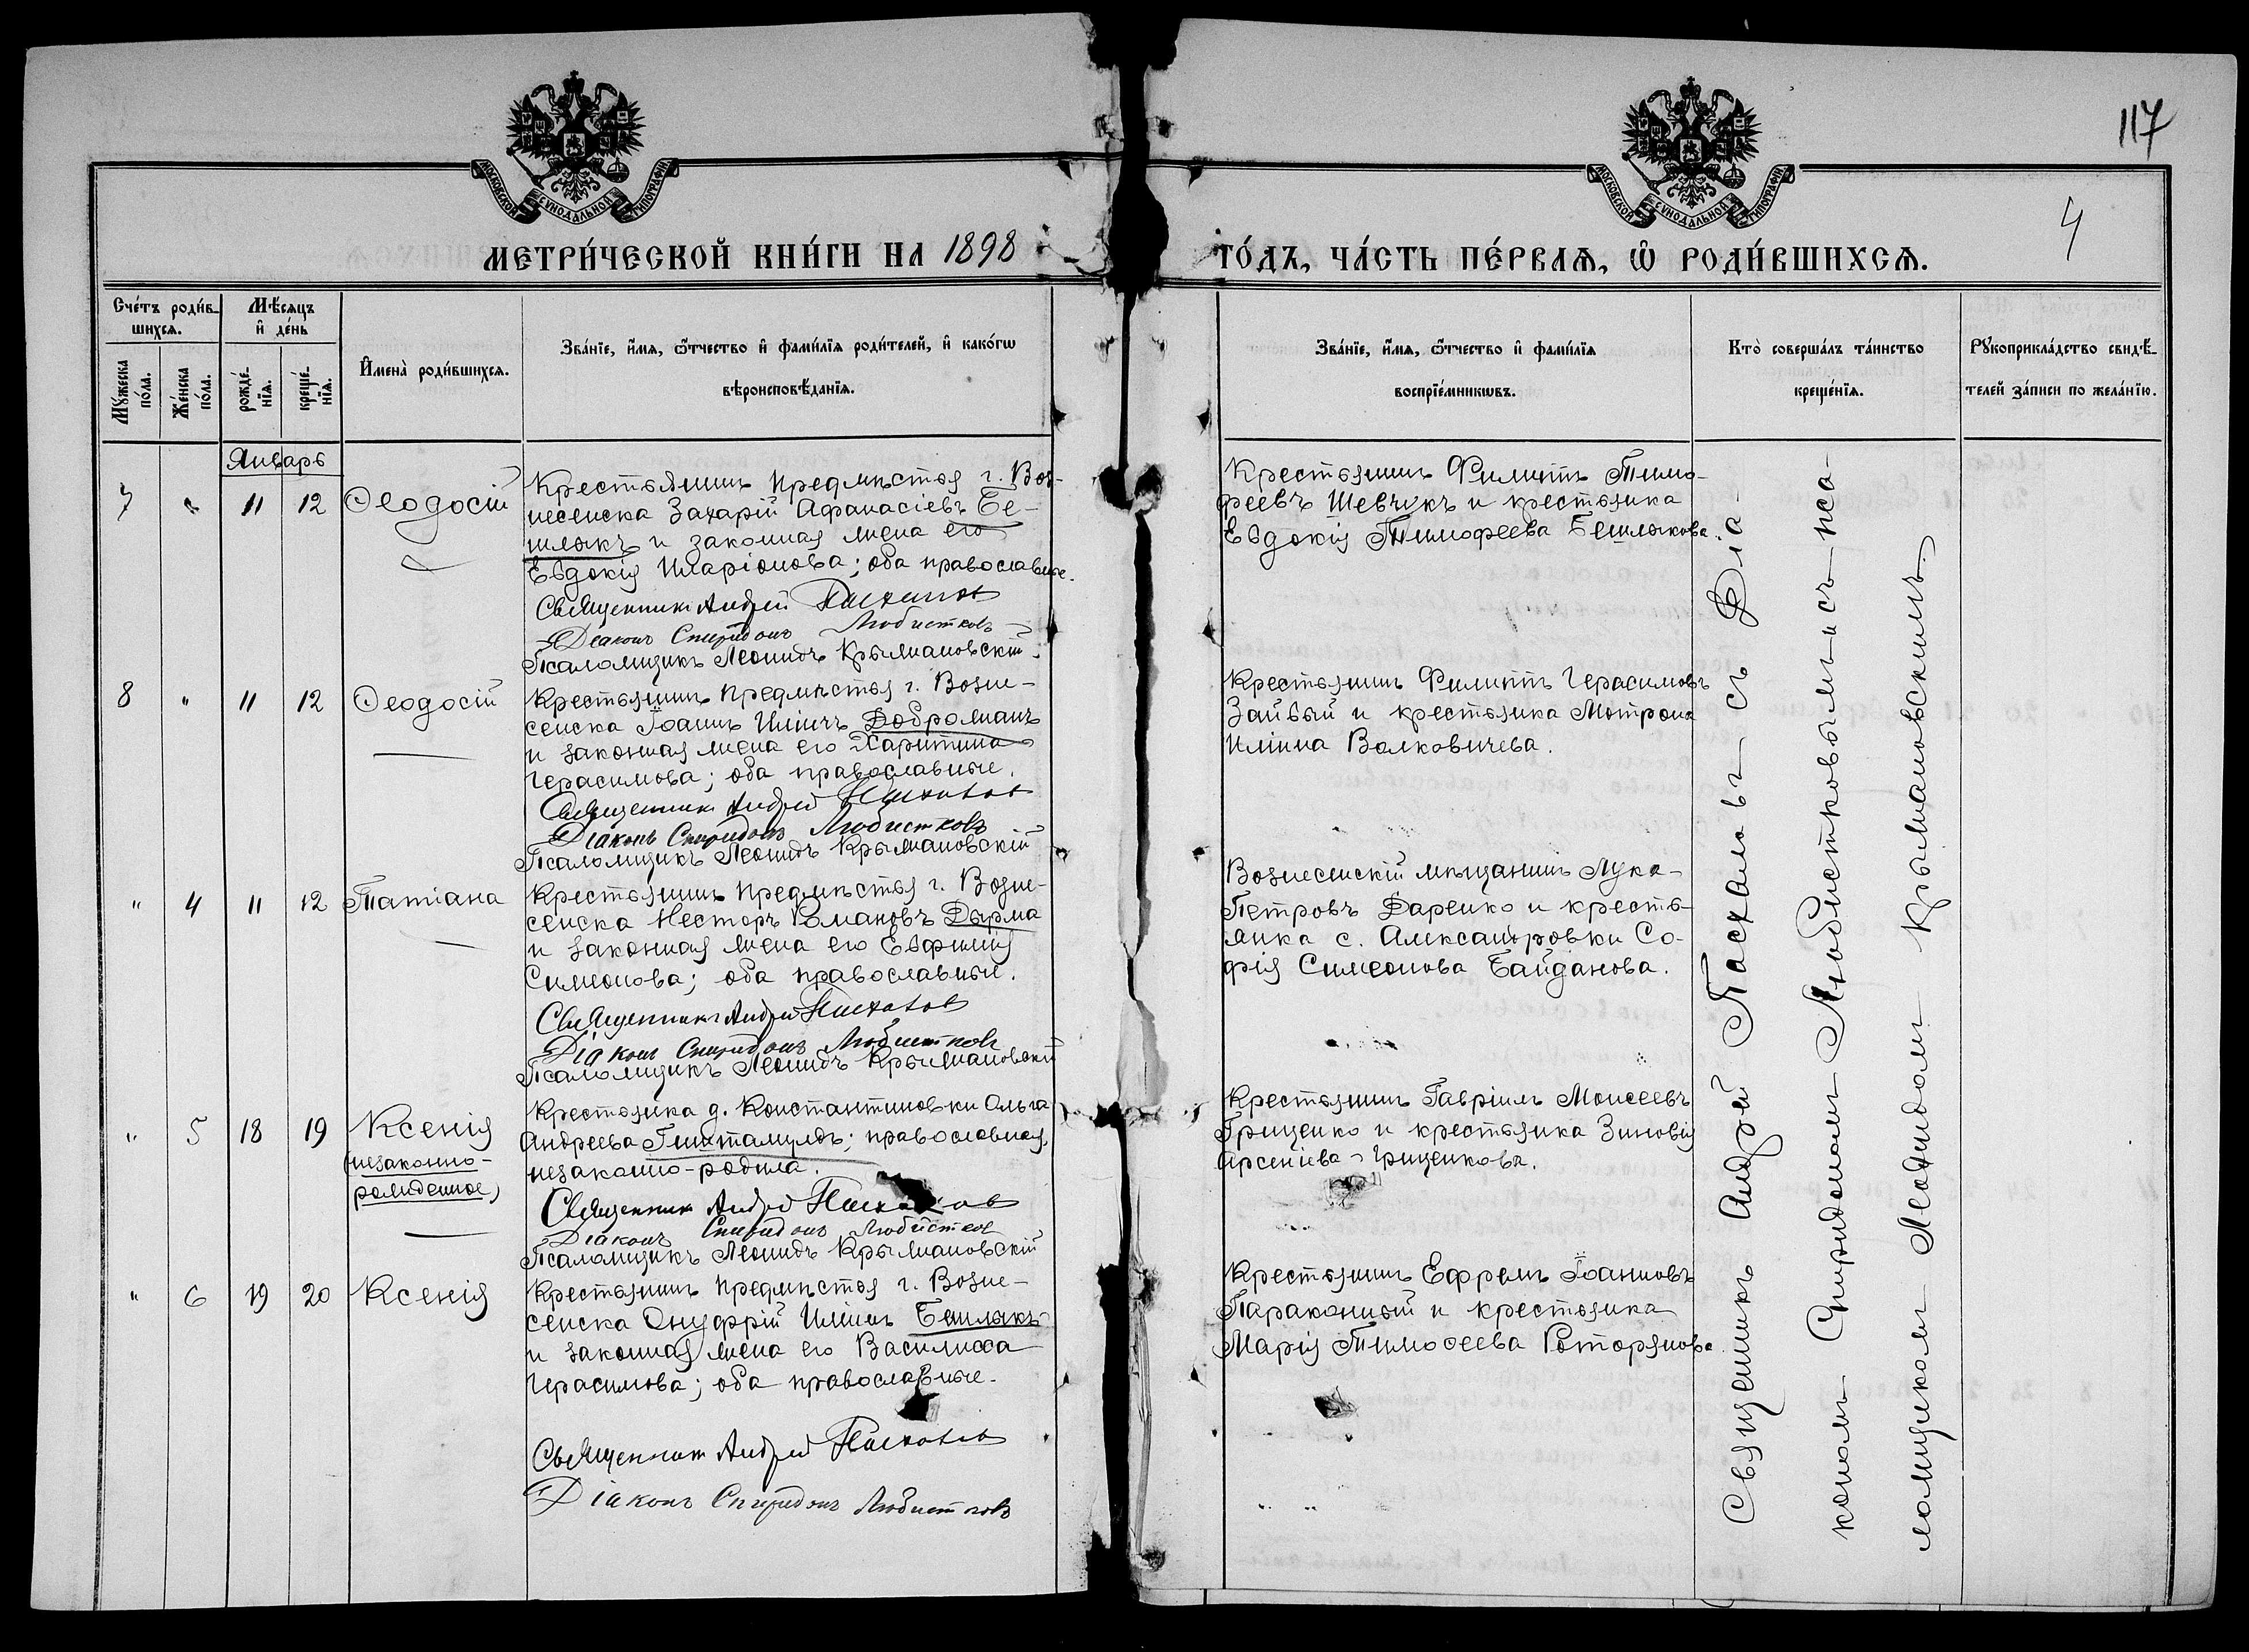 МОСКОВСКОЙ СѴНОДАЛЬНОЙ ТИПОГРАФІИ
МОСКОВСКОЙ СѴНОДАЛЬНОЙ ТИПОГРАФІИ
117
4
МЕТРИ́ЧЕСКОЙ КНИ́ГИ НА 1898
ГО́ДЪ, ЧА́СТЬ ПЕ́РВАѦ, Ѽ РОДИ́ВШИХСѦ.
Сче́тъ роди́в-
шихсѧ.
Мѣ́сѧцъ
и҆ де́нь
Мꙋ́жеска
по́ла.
Же́нска
по́ла.
рожде́-
нїѧ.
креще́-
нїѧ.
И҆мена̀ роди́вшихсѧ.
Зва́нїе, и҆́мѧ, ѻ҆́тчество и҆ фами́лїѧ роди́телей, и҆ како́гѡ
вѣроисповѣ́данїѧ.
Зва́нїе, и҆́мѧ, ѻ҆́тчество и҆ фами́лїѧ
воспрїе́мникѡвъ.
Кто̀ соверша́лъ та́инство
креще́нїѧ.
Рꙋкоприкла́дство свидѣ́-
телей за́писи по жела́нїю.
Январь
7 " 11 12 Ѳеодосій
Крестьянинъ предмѣстья г. Воз-
несенска Захарій Афанасіевъ Бе-
шлыкъ и законная жена его
Евдокія Иларіонова; оба православные.
Священникъ Андрей Пасхаловъ
Діаконъ Спиридонъ Любистковъ
Псаломщикъ Леонидъ Крыжановскій
Крестьянинъ Филиппъ Тимо-
феевъ Шевчукъ и крестьянка
Евдокія Тимофеева Бешлыкова.
8 " 11 12 Ѳеодосій
Крестьянинъ предмѣстья г. Возне-
сенска Іоаннъ Иліинъ Доброжанъ
и законная жена его Харитина
Герасимова; оба православные.
Священникъ Андрей Пасхаловъ
Діаконъ Спиридонъ Любистковъ
Псаломщикъ Леонидъ Крыжановскій
Крестьянинъ Филиппъ Герасимовъ
Зайвый и крестьянка Мотрона
Иліина Волковичева.
" 4 11 12 Татіана
Крестьянинъ предмѣстья г. Возне-
сенска Несторъ Романовъ Дырма
и законная жена его Евфимія
Симеонова; оба православные.
Священникъ Андрей Пасхаловъ
Діаконъ Спиридонъ Любистковъ
Псаломщикъ Леонидъ Крыжановскій
Вознесенскій мѣщанинъ Лука
Петровъ Даренко и кресть-
янка с. Александровки Со-
фія Симеонова Байданова.
" 5 18 19 Ксенія
(незаконно-
рожденное)
Крестьянка д. Константиновки Ольга
Андреева православная,
незаконно-родила.
Священникъ Андрей Пасхаловъ
Діаконъ Спиридонъ Любистковъ
Псаломщикъ Леонидъ Крыжановскій
Крестьянинъ Гавріилъ Моисеевъ
Гриценко и крестьянка Зиновія
Арсеніева Гриценкова.
" 6 19 20 Ксенія
Крестьянинъ предмѣстья г. Возне-
сенска Онуфрій Иліинъ Бешлыкъ
и законная жена его Василисса
Герасимова; оба православные.
Священникъ Андрей Пасхаловъ
Діаконъ Спиридонъ Любистковъ
Крестьянинъ Ефремъ Іоанновъ
Параконный и крестьянка
Марія Тимоѳеева Роторянова
Священникъ Андрей Пасхаловъ съ Діа-
кономъ Спиридономъ Любистковымъ и съ пса-
ломщикомъ Леонидомъ Крыжановскимъ